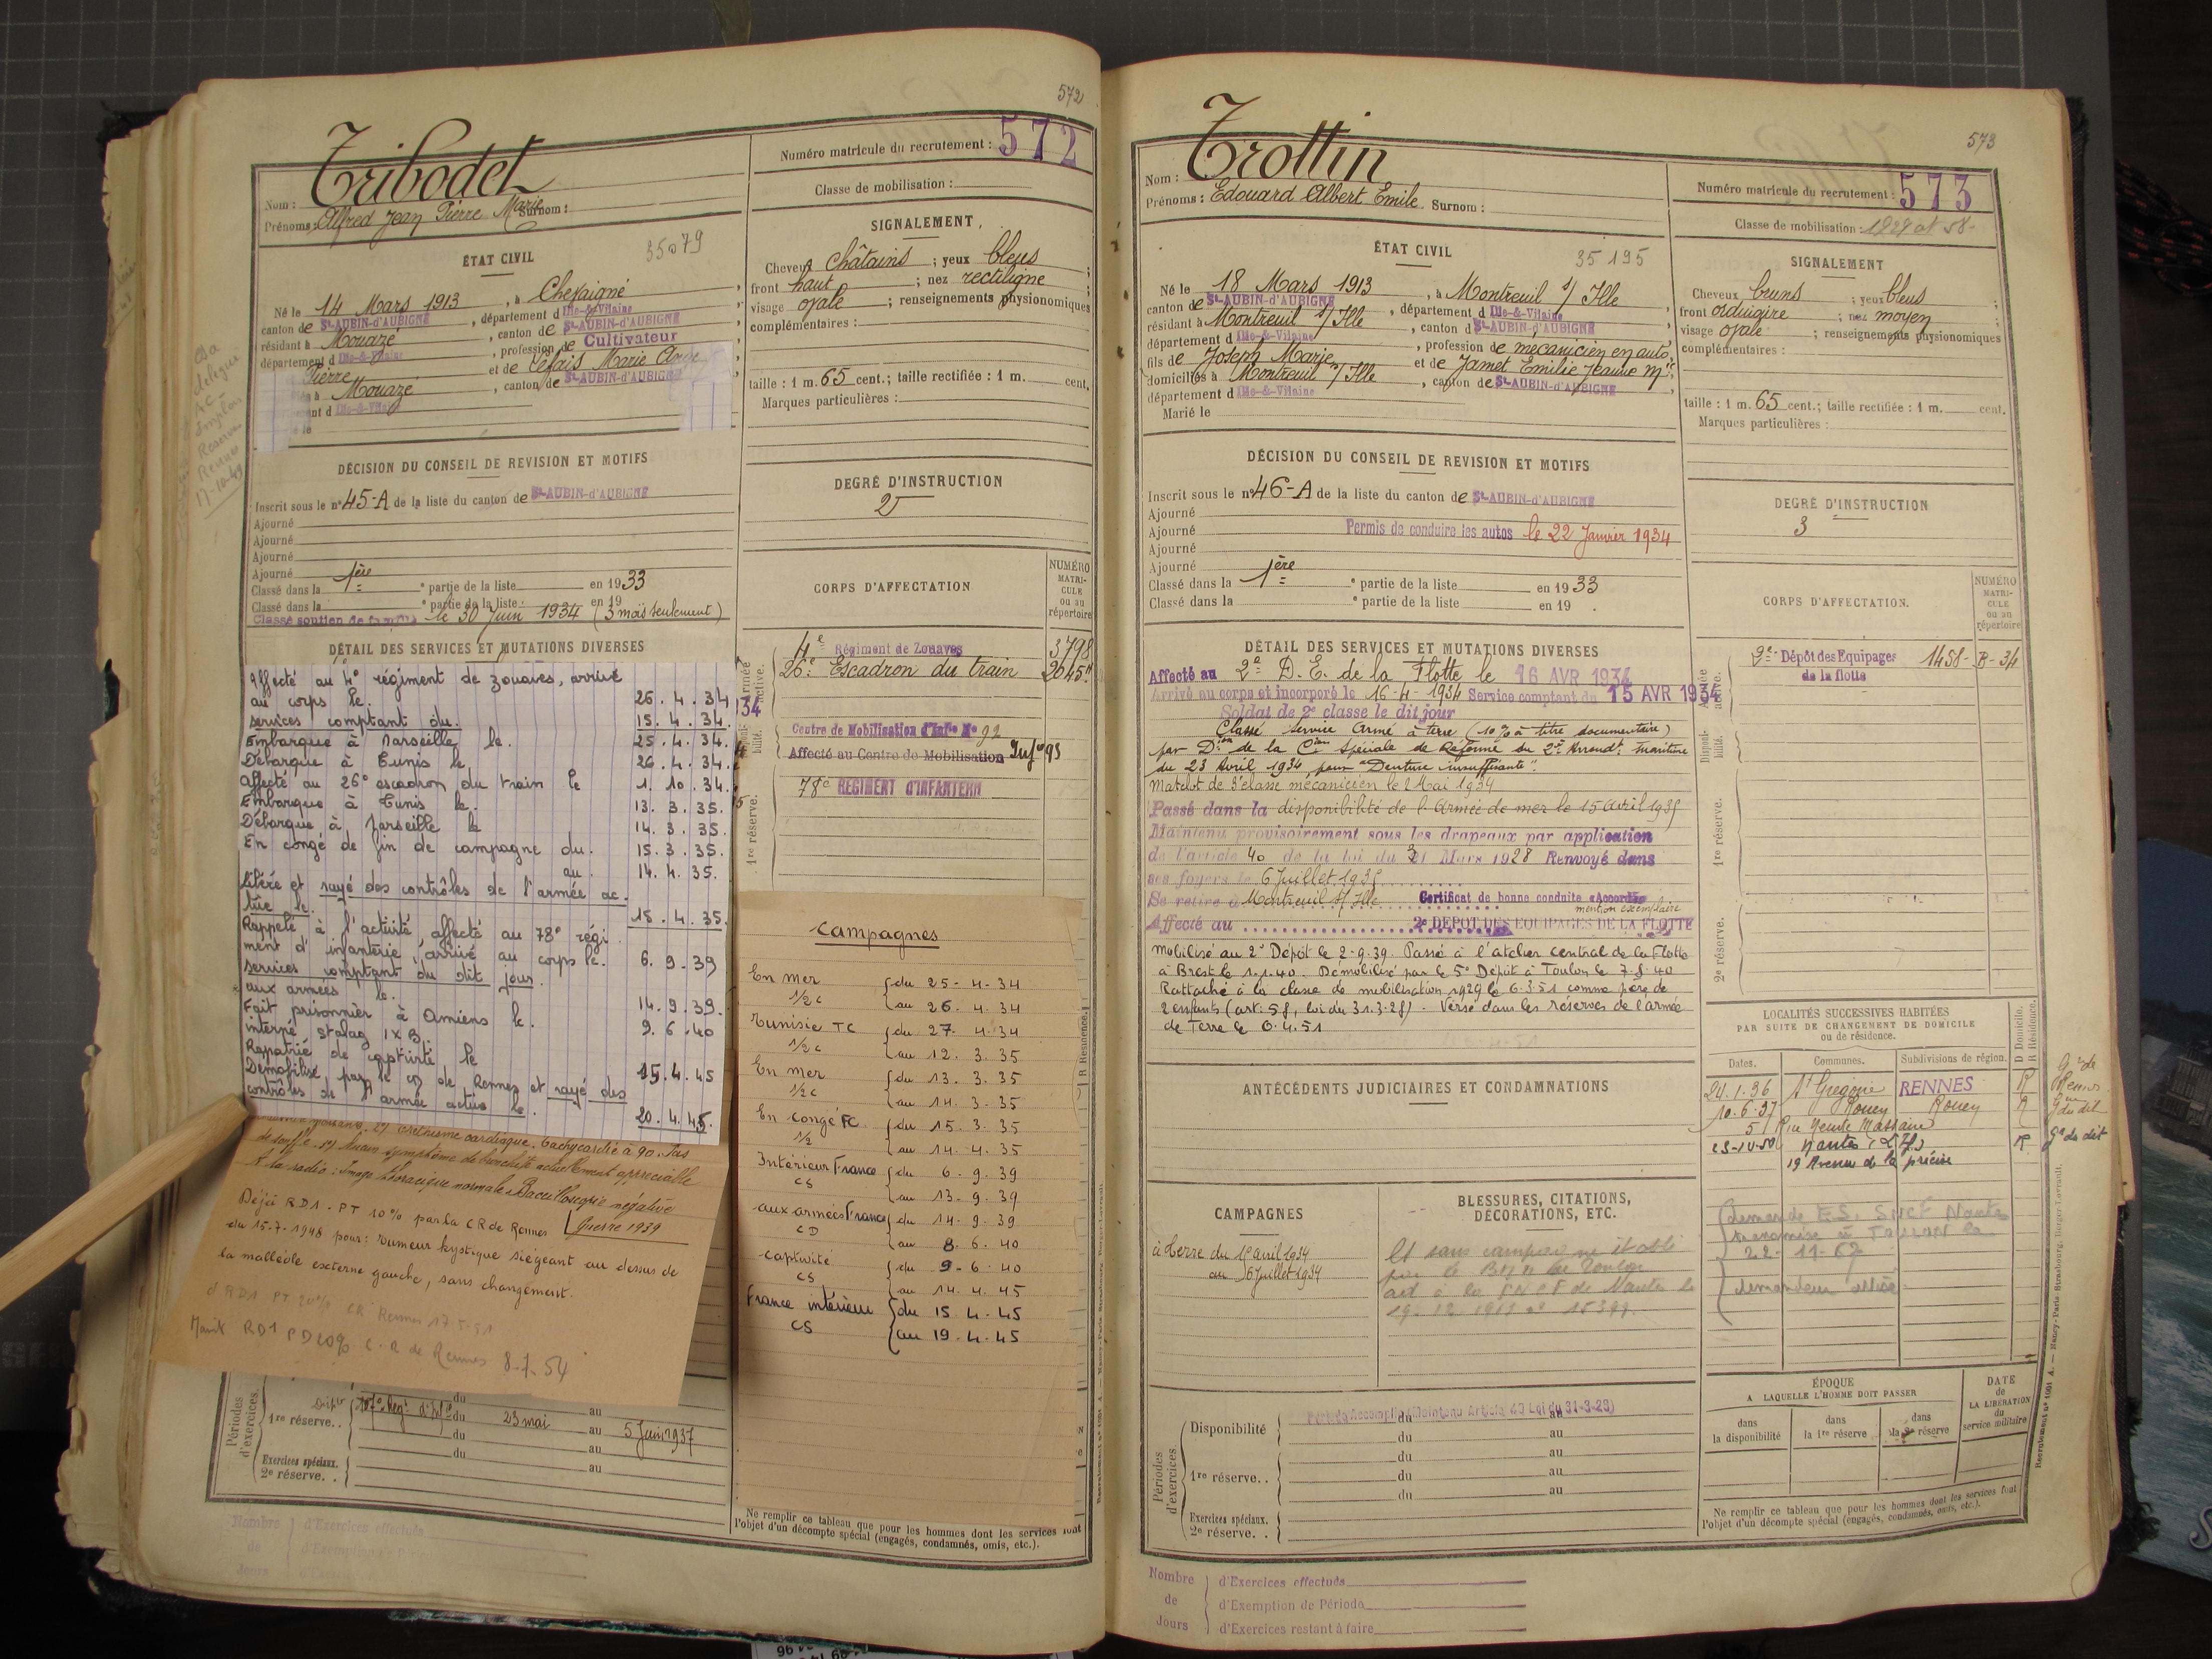 572
Tribodet
Nom :
Prénoms : Alfred Jean Pierre Marie Surnom :
Numéro matricule du recrutement : 572
Classe de mobilisation :
ÉTAT CIVIL
35079
Né le 14 Mars 1913, à Chevaigné
canton de St-AUBIN-d'AUBIGNÉ, département d Ille-&-Vilaine
résidant à Mouazé, canton de St-AUBIN-d'AUBIGNÉ
département d Ille-&-Vilaine, profession de Cultivateur
Pierre et de Marie
à Mouazé, canton de St-AUBIN-d'AUBIGNÉ
d Ille-&-Vilaine
SIGNALEMENT
Cheveux châtains ; yeux bleus ;
front haut ; nez rectiligne ;
visage ovale ; renseignements physionomiques
complémentaires :
taille : 1 m. 65 cent.; taille rectifiée : 1 m. cent.
Marques particulières :
DÉCISION DU CONSEIL DE REVISION ET MOTIFS
Inscrit sous le n° 45-A de la liste du canton de St-AUBIN-d'AUBIGNÉ
Ajourné
Ajourné
Ajourné
Ajourné
Classé dans la 1ère partie de la liste en 1933
Classé dans la e partie de la liste en 19
Classé soutien de famille le 30 Juin 1934 (3 mois seulement)
DEGRÉ D'INSTRUCTION
2
CORPS D'AFFECTATION
NUMÉRO MATRICULE ou au répertoire
4e Régiment de Zouaves 3798
26e Escadron du train 2045
Centre de Mobilisation d'Infie N° 92
Affecté au Centre de Mobilisation Infie 93
78e RÉGIMENT d'INFANTERIE
Armée active.
1re réserve.
DÉTAIL DES SERVICES ET MUTATIONS DIVERSES
Affecté au 4° régiment de zouaves, arrivé
au corps le. 26.4.34
services comptant du. 15.4.34.
Embarqué à Marseille le. 25.4.34.
Débarqué à Tunis le. 26.4.34.
Affecté au 26° escadron du train le 1.10.34.
Embarqué à Tunis le. 13.3.35.
Débarqué à Marseille le 14.3.35.
En congé de fin de campagne du. 15.3.35.
au. 14.4.35.
libéré et rayé des contrôles de l'armée ac.
tive le. 15.4.35.
Rappelé à l'activité, affecté au 78° régi
ment d'infanterie, arrivé au corps le. 6.9.39
services comptant du dit jour.
aux armées le. 14.9.39.
Fait prisonnier à Amiens le. 9.6.40
interné stalag IX B.
Rapatrié de captivité le 15.4.45
Démobilisé par le CD de Rennes et rayé des
contrôles de l'armée active le. 20.4.45.
éréthisme cardiaque, tachycardie à 90. Pas
de souffle. Aucun symptôme de bronchite actuellement appréciable
A la radio : Image thoracique normale. Bacilloscopie négative
Déjà RD1 - PT 10% par la CR de Rennes Guerre 1939
du 15-7-1948 pour : tumeur kystique siégeant au dessus de
la malléole externe gauche, sans changement.
RD1 PT 20% CR Rennes 17-5-51
RD1 PD 20% C.R de Rennes 8-7-54
Campagnes
En mer du 25-4-34
1/2 c au 26.4.34
Tunisie TC du 27.4.34
1/2 c au 12.3.35
En mer du 13.3.35
1/2 c au 14.3.35
En congé FC du 15.3.35
1/2 au 14-4.35
Intérieur France du 6-9.39
CS au 13-9.39
aux armées France du 14-9.39
CD au 8.6.40
captivité du 9-6-40
CS au 14.4.45
France intérieur du 15.4.45
CS au 19-4.45
Périodes d'exercices.
1re réserve. du 23 mai au 5 Juin 1937
du au
du au
Exercices spéciaux.
2e réserve. du au
Ne remplir ce tableau que pour les hommes dont les services font
l'objet d'un décompte spécial (engagés, condamnés, omis, etc.).
Nombre de Jours
d'Exercices effectués
573
Trottin
Nom :
Prénoms : Edouard Albert Emile Surnom :
Numéro matricule du recrutement : 573
Classe de mobilisation : 1929
ÉTAT CIVIL
35195
Né le 18 Mars 1913, à Montreuil s/ Ille
canton de St-AUBIN-d'AUBIGNÉ, département d Ille-&-Vilaine
résidant à Montreuil s/ Ille, canton d St-AUBIN-d'AUBIGNÉ
département d Ille-&-Vilaine, profession de mécanicien en auto
fils de Joseph Marie et de Jamet Emilie Jeanne Mie
domiciliés à Montreuil s/ Ille, canton de St-AUBIN-d'AUBIGNÉ
département d Ille-&-Vilaine
Marié le
SIGNALEMENT
Cheveux bruns ; yeux bleus ;
front ordinaire ; nez moyen
visage ovale ; renseignements physionomiques
complémentaires :
taille : 1 m. 65 cent.; taille rectifiée : 1 m. cent.
Marques particulières :
DÉCISION DU CONSEIL DE REVISION ET MOTIFS
Inscrit sous le n° 46-A de la liste du canton de St-AUBIN-d'AUBIGNÉ
Ajourné
Ajourné Permis de conduire les autos le 22 Janvier 1934
Ajourné
Ajourné
Classé dans la 1ère partie de la liste en 1933
Classé dans la e partie de la liste en 19
DEGRÉ D'INSTRUCTION
3
CORPS D'AFFECTATION.
NUMÉRO MATRICULE ou au répertoire
2e Dépôt des Equipages de la flotte 1458-B-34
Armée active.
Disponibilité.
1re réserve.
2e réserve.
DÉTAIL DES SERVICES ET MUTATIONS DIVERSES
Affecté au 2e D.E. de la Flotte le 16 AVR 1934
Arrivé au corps et incorporé le 16-4-1934 Service comptant du 15 AVR 1934
Soldat de 2e classe le dit jour
Classé service Armé à terre (10% à titre documentaire)
par Don de la Cion Spéciale de Réforme du 2e Arrondt maritime
du 23 Avril 1934, pour "Denture insuffisante".
Matelot de 3e classe mécanicien le 2 Mai 1934
Passé dans la disponibilité de l'Armée de mer le 15 Avril 1935
Maintenu provisoirement sous les drapeaux par application
de l'article 40 de la loi du 31 Mars 1928 Renvoyé dans
ses foyers le 6 Juillet 1935
Se retire à Montreuil s/ Ille Certificat de bonne conduite "Accordé"
mention exemplaire
Affecté au 2e DEPOT DES EQUIPAGES DE LA FLOTTE
Mobilisé au 2e Dépôt le 2-9-39. Passé à l'atelier central de la Flotte
à Brest le 1.1.40. Démobilisé par le 5e Dépôt à Toulon le 7-8-40
Rattaché à la classe de mobilisation 1929 le 6.3.51 comme père de
2 enfants (art. 58, loi du 31.3.28). Versé dans les réserves de l'armée
de Terre le 6.4.51
ANTÉCÉDENTS JUDICIAIRES ET CONDAMNATIONS
LOCALITÉS SUCCESSIVES HABITÉES
PAR SUITE DE CHANGEMENT DE DOMICILE
ou de résidence.
Dates. Communes. Subdivisions de région. D Domicile. R Résidence.
24.1.36 St Grégoire RENNES R
10.6.37 Rouen Rouen R
5 Rue Massacre
Nantes R
19 Avenue de la
CAMPAGNES
à terre du 15 avril 1934
au 6 juillet 1934
BLESSURES, CITATIONS, DÉCORATIONS, ETC.
Périodes d'exercices.
Disponibilité Période Accomplie (Maintenu Article 40 Loi du 31-3-28)
du au
1re réserve.. du au
du au
du au
Exercices spéciaux.
2e réserve. .
ÉPOQUE
A LAQUELLE L'HOMME DOIT PASSER
dans la disponibilité
dans la 1re réserve
dans la 2e réserve
DATE de LA LIBÉRATION du service militaire
Ne remplir ce tableau que pour les hommes dont les services font
l'objet d'un décompte spécial (engagés, condamnés, omis, etc.).
Nombre de Jours
d'Exercices effectués
d'Exemption de Période
d'Exercices restant à faire